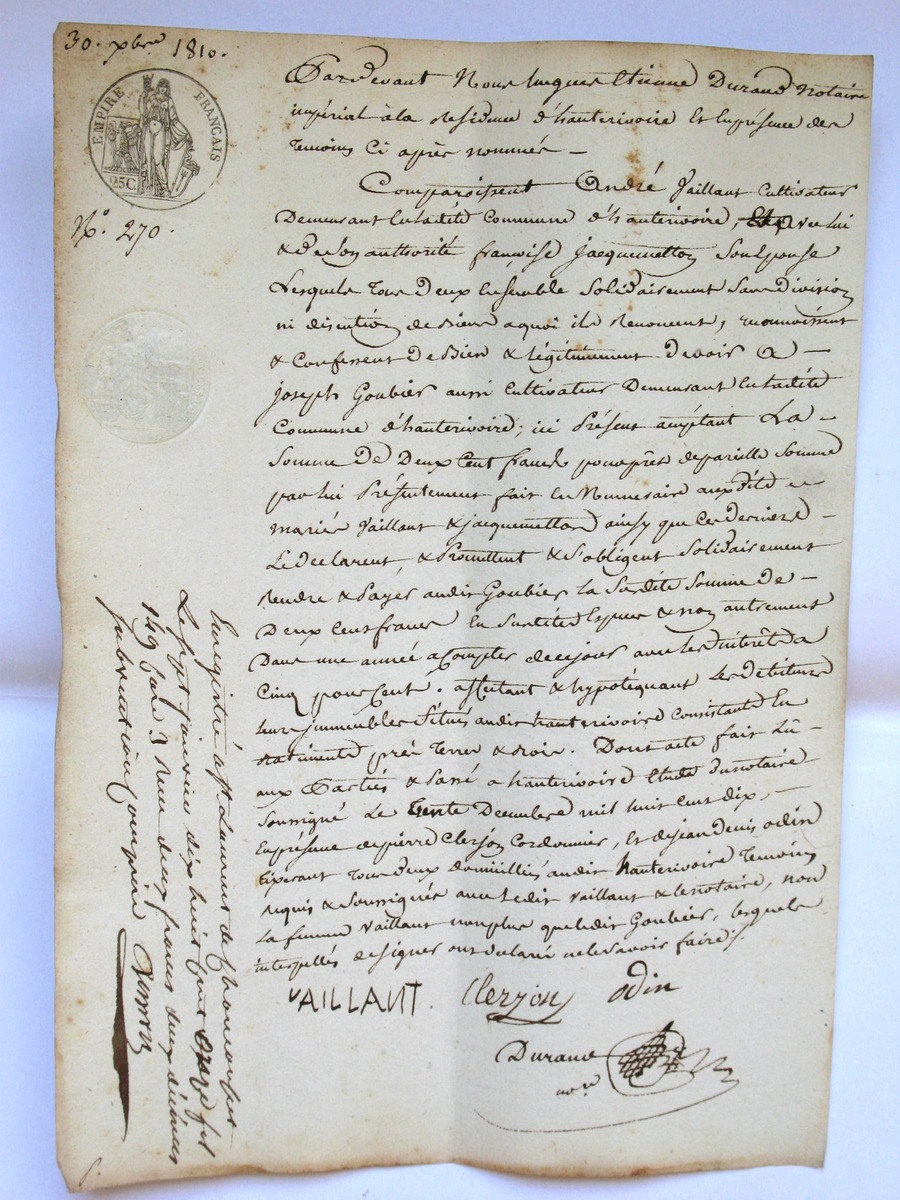 30. xbre 1810.
EMPIRE FRANÇAIS
25C.
N.o 270.
Pardevant Nous Etienne Durand Notaire
impérial à la Residence d'hauterivoire Et En présence des
temoins Ci après nommés —
Comparoissent André Vaillant Cultivateur
Demeurant En ladite Commune d'hauterivoire, de lui
& de Son authorité françoise jacquemetton Son Epouse
Lesquels tous Deux Ensemble Solidairement Sans Division
ni discution de Biens a quoi ils Renoncent, reconnoissent
& Confessent de Bien & légitimement devoir a —
joseph Goubier aussi Cultivateur Demeurant En ladite
Commune d'hauterivoire, ici Présent acceptant La —
Somme De Deux Cent francs pour prêt de pareille Somme
par lui Présentement fait En Numeraire auxdits —
mariés Vaillant & jacquemetton ainsy que Ces derniers —
Le declarent, & Promettent & S'obligent Solidairement
rendre & Payer audit Goubier la Susdite Somme de —
Deux Cent francs En Susdites Especes & non autrement
Dans une année a Compter de ce jour avec les intérêts a
Cinq pour Cent. affectant & hypotéquant Les Debiteurs
leurs immeubles Situés audit hauterivoire Consistants En
Batiments près terres & Bois. Dont acte fait Lû —
aux Parties & Passé a hauterivoire Etude du notaire
Soussigné Le trente Decembre mil huit Cent dix, —
En présence de pierre Clerjon Cordonnier, Et de jean Denis odin
tous Deux domiciliés audit hauterivoire Temoins
requis & Soussignés avec Ledit Vaillant & le notaire, non
la femme Vaillant non plus que ledit Goubier, lesquels
interpellés de signer ont declaré ne le Savoir faire ./.
VAILLANT. Clerjon odin
Durand
nore
Enregistré a St Laurent de Chamousset
Le sept janvier dix huit cent onze fol
149 Case 3 Recu deux francs deux décimes